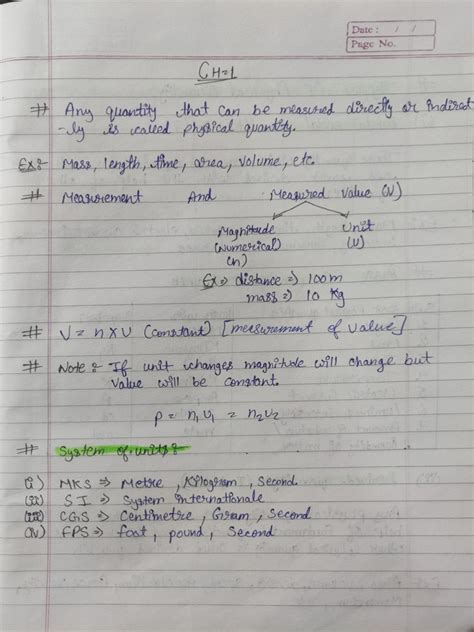 Date : / /
Page No.
CH-1
# Any quantity that can be measured directly or indirect
-ly is called physical quantity.
Ex:- Mass, length, time, area, volume, etc.
# Measurement And Measured Value (V)
Magnitude Unit
(Numerical) (U)
(n)
Ex => distance => 100m
mass => 10 Kg
# V = n x U (constant) [measurement of value]
# Note: If unit changes magnitude will change but
value will be constant.
p = n₁u₁ = n₂u₂
# System of units:
(i) MKS => Metre, Kilogram, Second
(ii) SI => System internationale
(iii) CGS => Centimetre, Gram, Second
(iv) FPS => foot, pound, Second